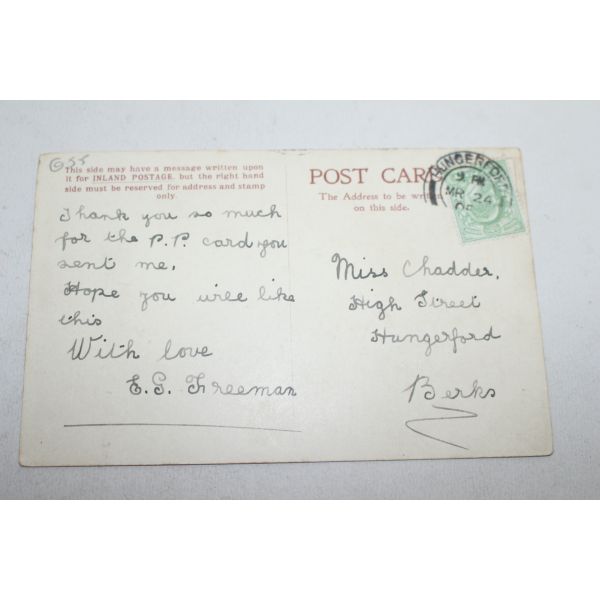 G55
This side may have a message written upon
it for INLAND POSTAGE, but the right hand
side must be reserved for address and stamp
only.
Thank you so much
for the P.P. card, you
sent me,
Hope you will like
this
With love
E.G. Freeman
POST CARD
The Address to be written
on this side.
HUNGERFORD
9 PM
MR 24
Miss Chadder,
High Street
Hungerford
Berks